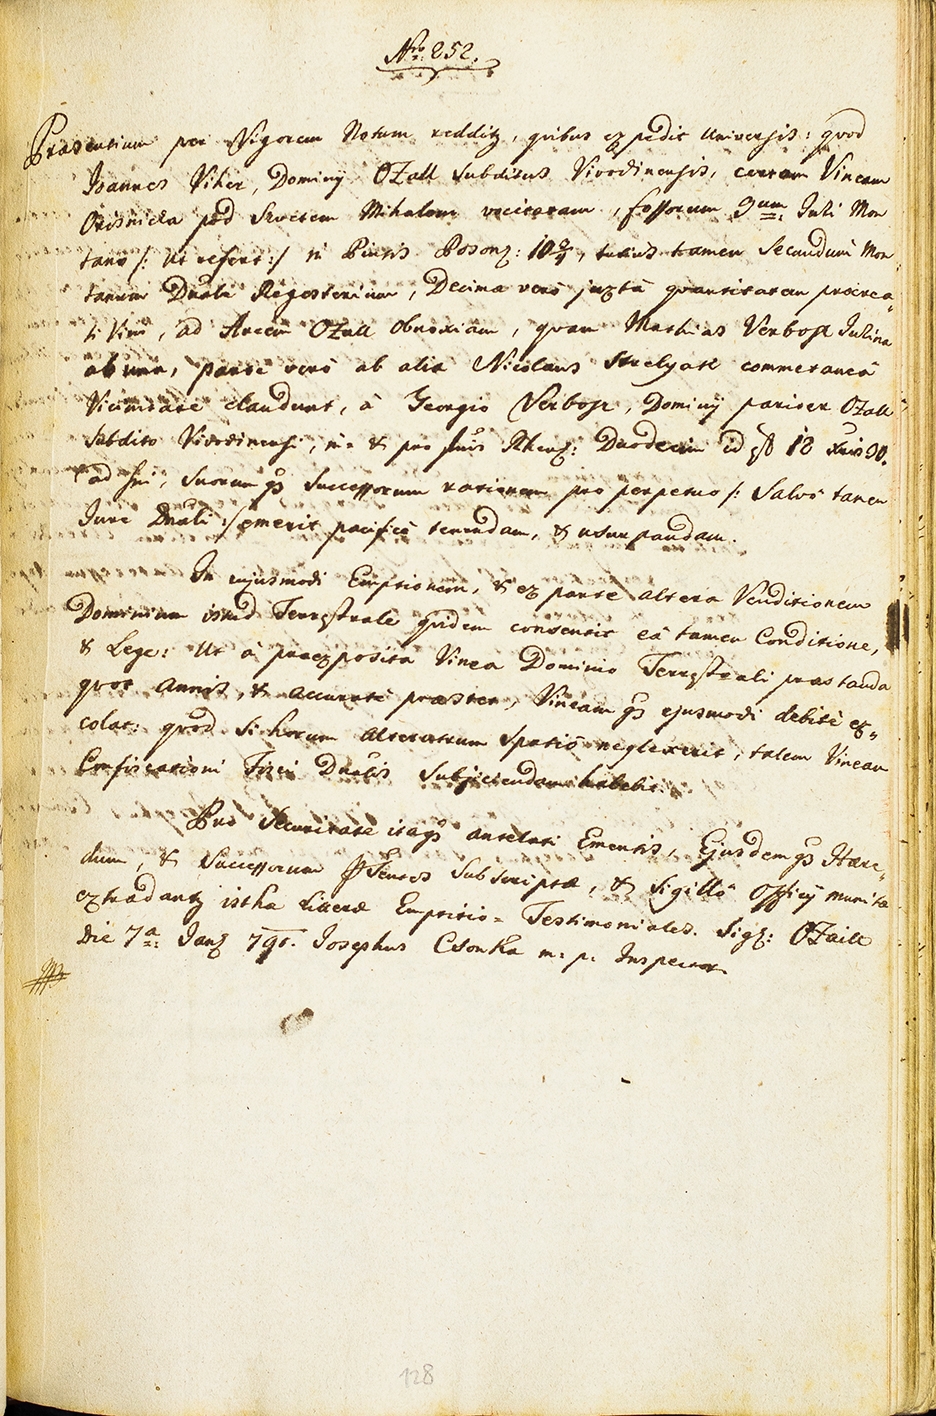 Nro 252.
Praesentium per Vigorem Notum redditz, quibus expedit universis: quod
Joannes Viher, Dominÿ OZall Subditus Vivodinensis, certam Vineam
pod Svetem Mihalom vocitatam, fossorum 9um Juli Mon
tano /: ut refert :/ in Pintis Poson: 10 tamen Secundum Mon
tanum Dnale Regestorium, Decima vero juxta quantitatem procrea
ti Vini, ad Arcem OZall obnoxiam, quam Mathias Verbos Julina
ab una, parte vero ab alia Nicolaus commetanea
Vicinitate claudunt, à Georgio Verbos, Dominÿ pariter OZall
Subdito Vivodinensi, in & pro flnis Rhen: Duodecim id est 12 xris 30.
ad sui, suorumqs Successorum rationem pro perpetuo /: Salvo tamen
Jure Dnali :/ emerit pacificè tenendam, & usurpandam.
In cujusmodi Emptionem, & ex parte altera Venditionem
Dominium istud Terrestrale quidem consentit eâ tamen Conditione,
& Lege: Ut à praexposita Vinea Dominio Terrestrali praestanda
quot annis, & accuratè praestet, Vineamqs ejusmodi debitè ex„
colat: quod si horum alterutrum spatiô neglexerit, talem Vineam
Confiscationi Fisci Dnalis Subjiciendam habebit.
Pro Securitate itaqs antelati Ementis, Ejusdemqs Haere„
dum, & Successorum Psentes Subscriptae, & Sigillô Officÿ munitae
extradantz istha Litterae Emptitio = Testimoniales. Sigz: OZaile
Die 7a Janz 791. Josephus Csonka m: p: Inspector
128